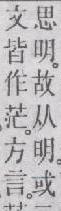 思明。故从明。或
文皆作茫。方言。